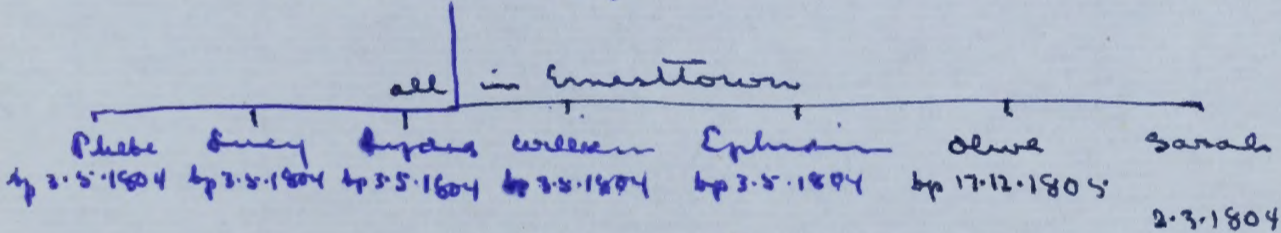 all in Ernesttown
Phebe Lucy Lydia William Ephraim Olive Sarah
bp 3.5.1804 bp 3.5.1804 bp 3.5.1804 bp 3.5.1804 bp 3.5.1804 bp 17.12.1805
2.3.1804